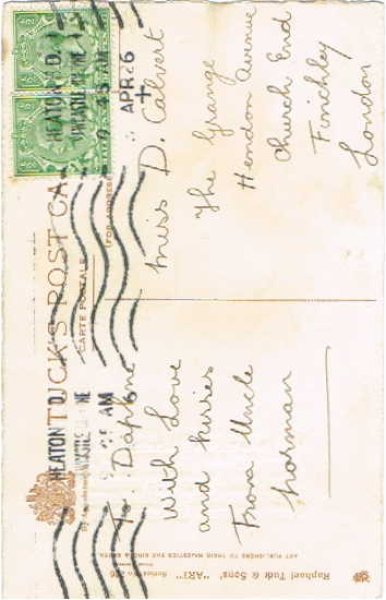 TUCK'S POST CA
CARTE POSTALE
(FOR ADDRESS
HEATON RD.
9 45 AM
APR 26
HEATON
AM
To Daphne
With Love
and kisses
From Uncle
Norman
Miss D. Calvert
The Grange
Hendon Avenue
Church End
Finchley
London
Raphael Tuck & Sons' "ART"
ART PUBLISHERS TO THEIR MAJESTIES THE KING & QUEEN